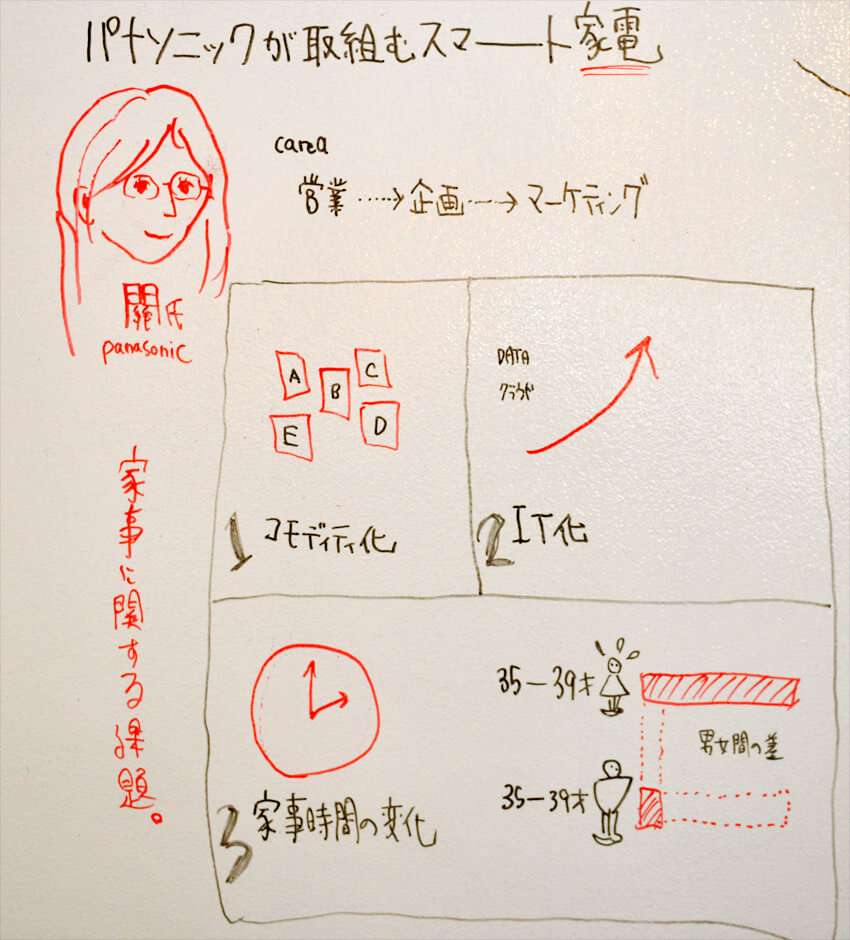 パナソニックが取組むスマート家電
carea
営業……→企画……→マーケティング
關氏
panasonic
家事に関する課題。
A
B
C
E
D
1 コモディティ化
DATA
クラウド
2 IT化
3 家事時間の変化
35–39才
男女間の差
35–39才